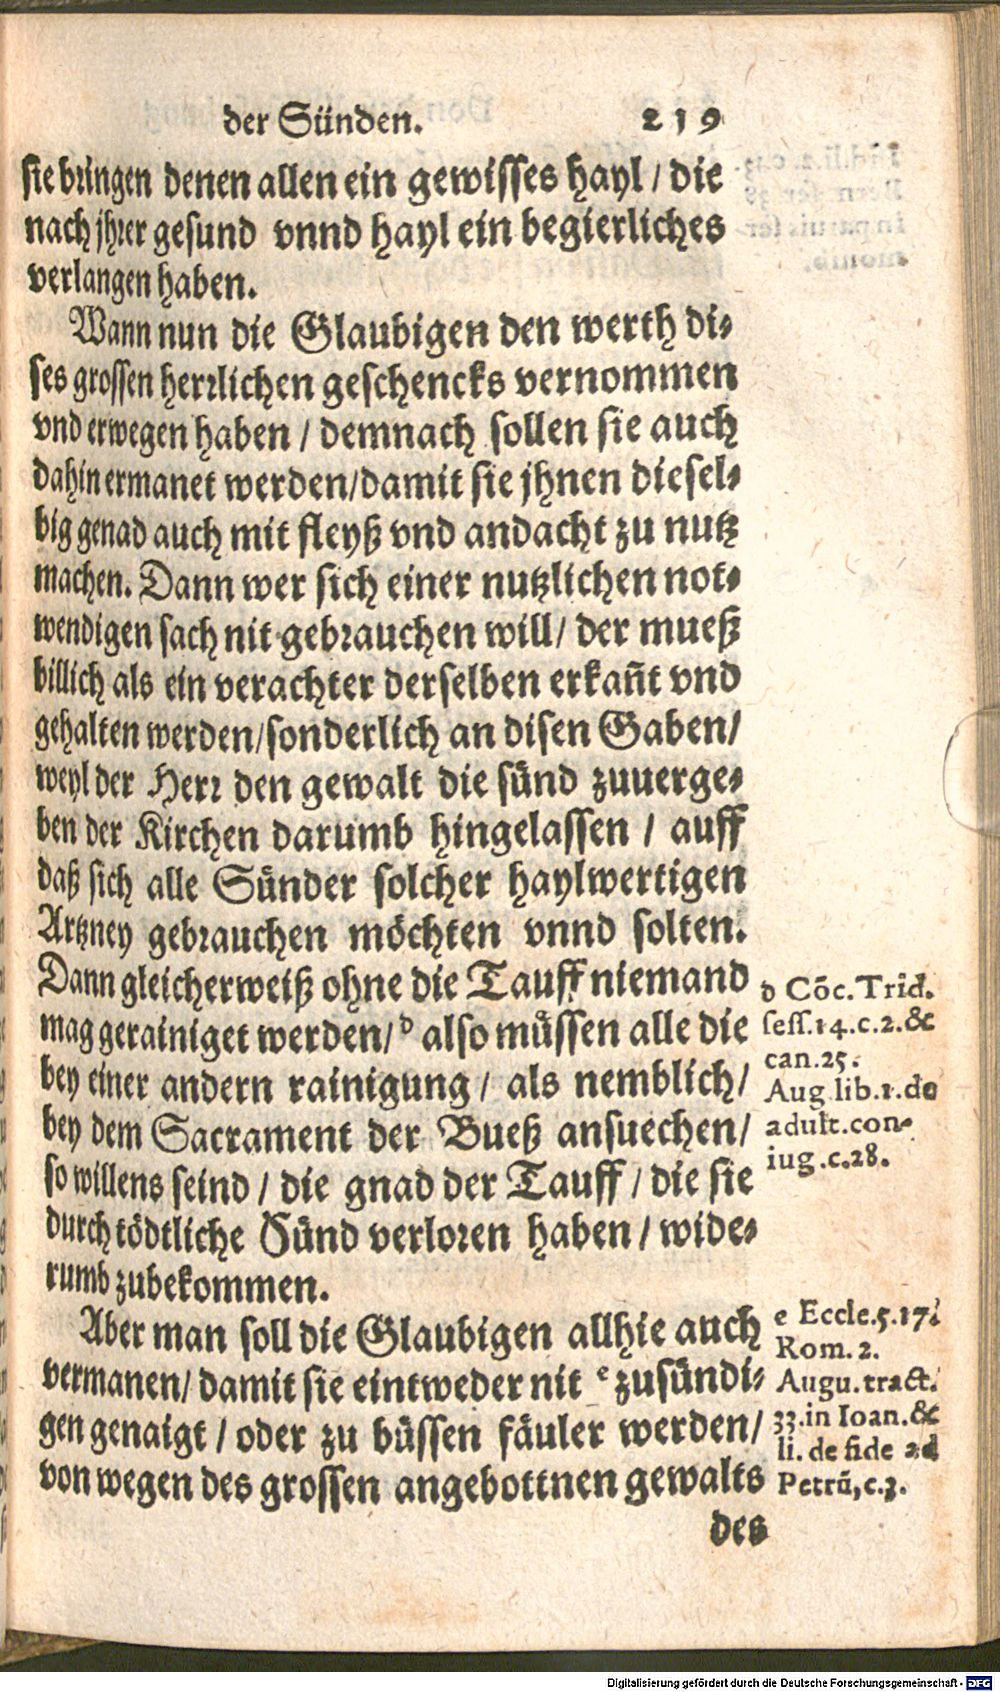 der Sünden. 219
sie bringen denen allen ein gewisses hayl / die
nach jhrer gesund vnnd hayl ein begierliches
verlangen haben.
Wann nun die Glaubigen den werth di-
ses grossen herrlichen geschencks vernommen
vnd erwegen haben / demnach sollen sie auch
dahin ermanet werden/damit sie jhnen diesel-
big genad auch mit fleyß vnd andacht zu nutz
machen. Dann wer sich einer nutzlichen not-
wendigen sach nit gebrauchen will/ der mueß
billich als ein verachter derselben erkañt vnd
gehalten werden/sonderlich an disen Gaben/
weyl der Herr den gewalt die sünd zuuerge-
ben der Kirchen darumb hingelassen / auff
daß sich alle Sünder solcher haylwertigen
Artzney gebrauchen möchten vnnd solten.
Dann gleicherweiß ohne die Tauff niemand
mag gerainiget werden/ d also müssen alle die
bey einer andern rainigung / als nemblich/
bey dem Sacrament der Bueß ansuechen/
so willens seind / die gnad der Tauff / die sie
durch tödtliche Sünd verloren haben / wide-
rumb zubekommen.
Aber man soll die Glaubigen allhie auch
vermanen/ damit sie eintweder nit e zusündi-
gen genaigt / oder zu büssen fäuler werden/
von wegen des grossen angebottnen gewalts
des
d Cōc. Trid.
sess.14.c.2.&
can.25.
Aug lib.1.de
adult.con-
iug.c.28.
e Eccle.5.17.
Rom.2.
Augu.tract.
33.in Ioan.&
li. de fide ad
Petrū,c.3.
Digitalisierung gefördert durch die Deutsche Forschungsgemeinschaft - DFG